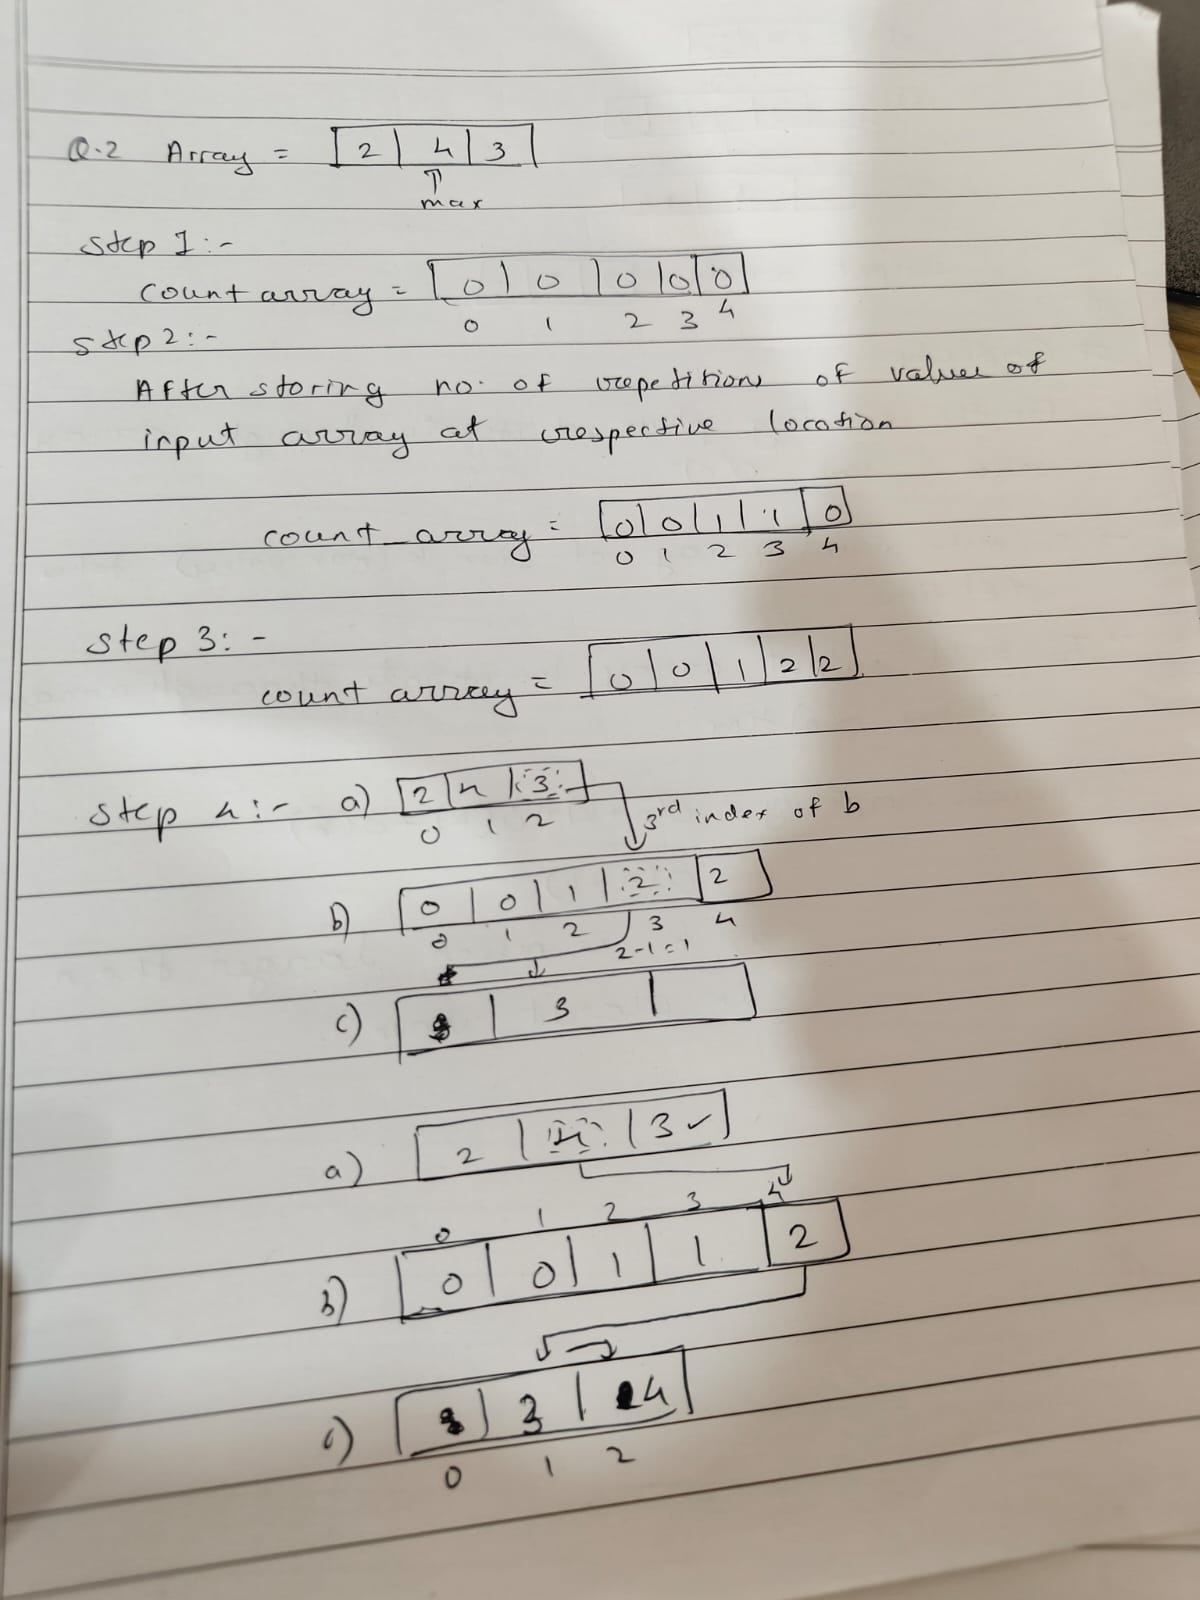 Q.2 Array = 2 4 3
max
Step 1:-
Count array = 0 0 0 0 0
0 1 2 3 4
Step 2:-
After storing no. of repetition of values of
input array at respective location
count array = 0 0 1 1 0
0 1 2 3 4
Step 3:-
count array = 0 0 1 2 2
Step 4:- a) 2 4 3
0 1 2
3rd index of b
b) 0 0 1 2 2
0 1 2 3 4
2-1=1
c) 3
a) 2 4 3 ✓
0 1 2 3 4
b) 0 0 1 1 2
c) 3 4
0 1 2